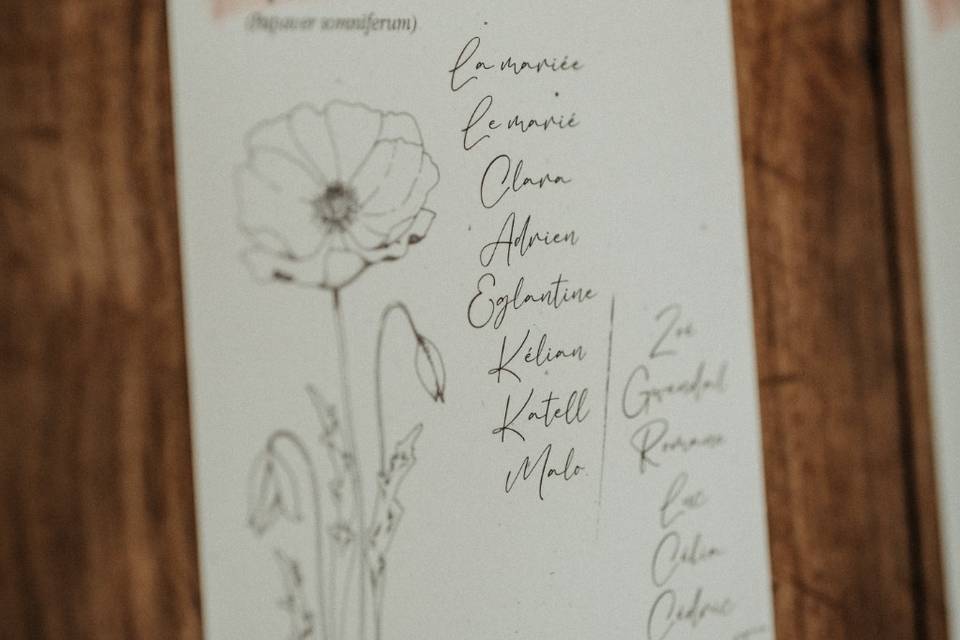 (Papaver somniferum)
La mariée
Le marié
Clara
Adrien
Églantine
Kélian
Katell
Malo
Zoé
Gwendal
Romane
Luc
Célia
Cédric